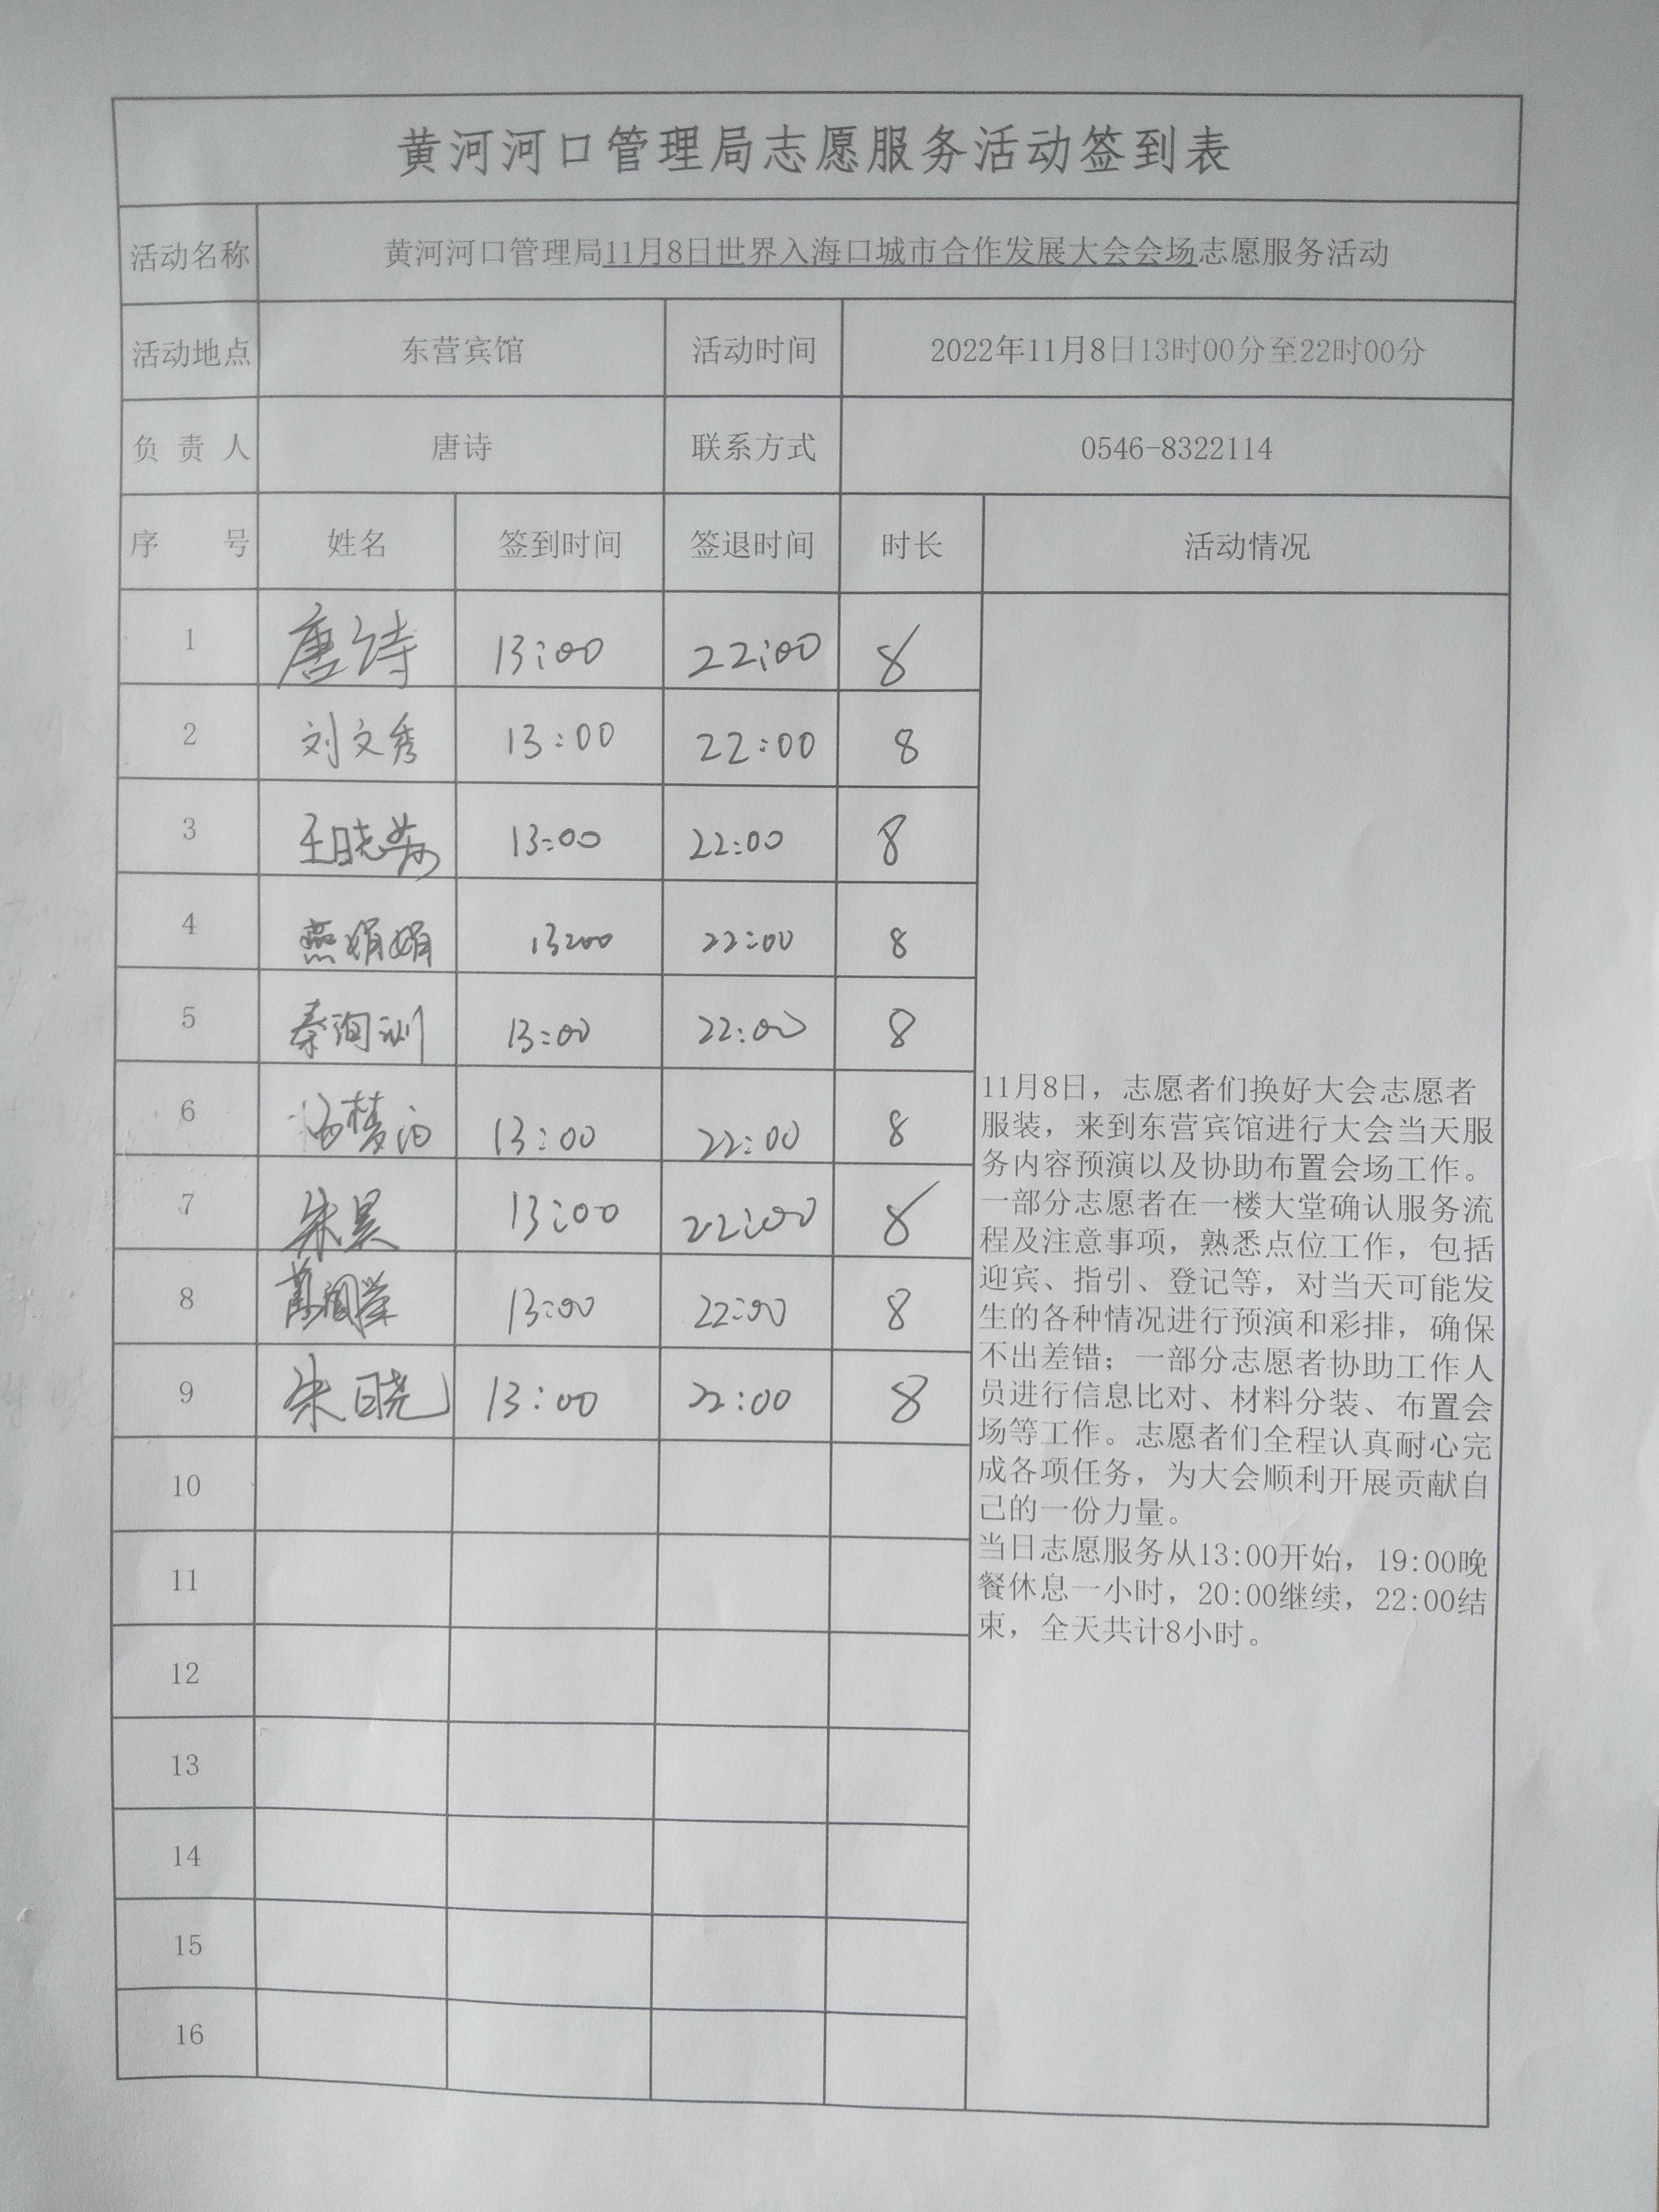 黄河河口管理局志愿服务活动签到表
活动名称 黄河河口管理局11月8日世界入海口城市合作发展大会会场志愿服务活动
活动地点 东营宾馆 活动时间 2022年11月8日13时00分至22时00分
负责人 唐诗 联系方式 0546-8322114
序号 姓名 签到时间 签退时间 时长 活动情况
1 唐诗 13:00 22:00 8
2 刘文秀 13:00 22:00 8
3 王晓芳 13:00 22:00 8
4 燕娟娟 13:00 22:00 8
5 秦洵训 13:00 22:00 8
6 13:00 22:00 8
7 朱昊 13:00 22:00 8
8 13:00 22:00 8
9 朱晓 13:00 22:00 8
10
11
12
13
14
15
16
11月8日，志愿者们换好大会志愿者
服装，来到东营宾馆进行大会当天服
务内容预演以及协助布置会场工作。
一部分志愿者在一楼大堂确认服务流
程及注意事项，熟悉点位工作，包括
迎宾、指引、登记等，对当天可能发
生的各种情况进行预演和彩排，确保
不出差错；一部分志愿者协助工作人
员进行信息比对、材料分装、布置会
场等工作。志愿者们全程认真耐心完
成各项任务，为大会顺利开展贡献自
己的一份力量。
当日志愿服务从13:00开始，19:00晚
餐休息一小时，20:00继续，22:00结
束，全天共计8小时。